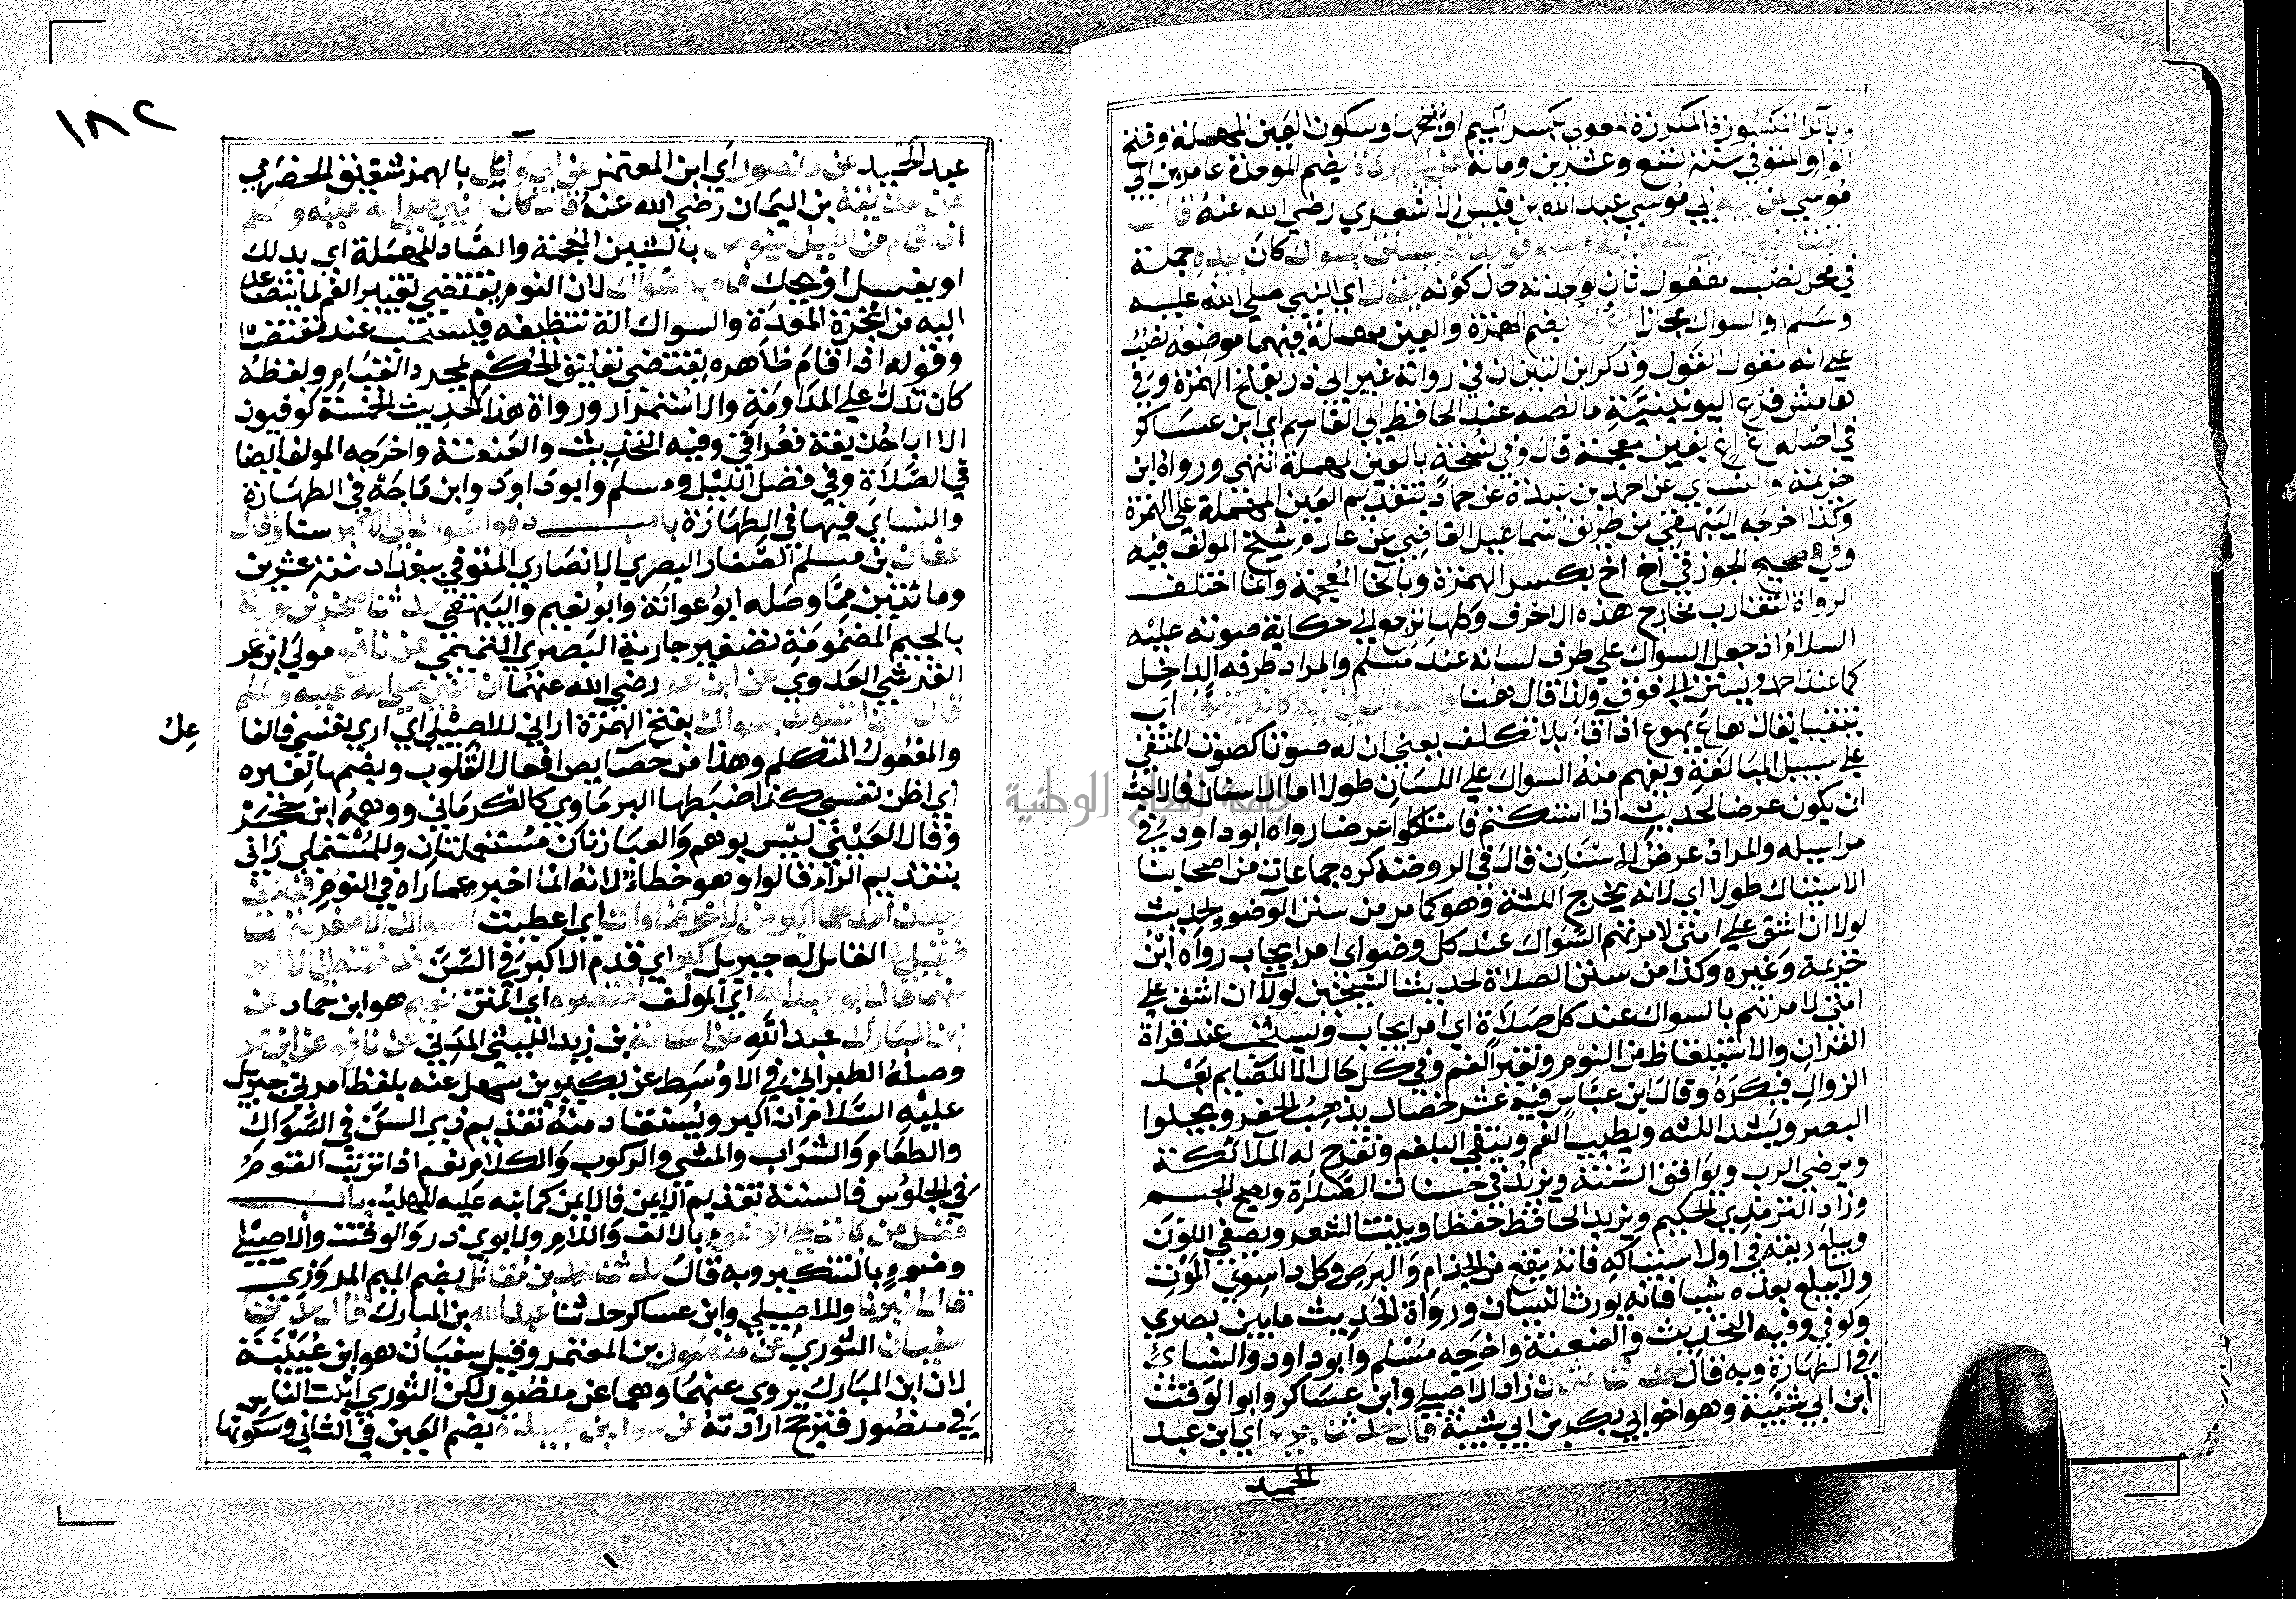 وبالراء المكسورة المكررة المعولي بكسر الميم او بفتحها وسكون العين المهملة وفتح
الواو المتوفي سنة تسع وعشرين ومائة عن ابي بردة بضم الموحدة عامر بن ابي
موسي عن ابيه ابي موسي عبد الله بن قيس الاشعري رضي الله عنه قال
اتيت النبي صلي الله عليه وسلم فوجدته يستن بسواك كان بيده جملة
في محل نصب مفعول ثان لوجدته حال كونه يقول اي النبي صلي الله عليه
وسلم او السواك مجازا اع اع بضم الهمزة والعين مهملة فيهما موضعه نصب
علي انه مقول القول وذكر ابن التين ان في رواية غير ابي ذر بفتح الهمزة وفي
هامش فرع اليونينية ما نصه عند الحافظ ابي القاسم اي ابن عساكر
في اصله اغ اغ بغين معجمة قال وفي نسخة بالعين المهملة انتهي ورواه ابن
خزيمة والنساي عن احمد بن عبدة عن حماد بتقديم العين المهملة علي الهمزة
وكذا اخرجه البيهقي من طريق اسماعيل القاضي عن عارم شيخ المولف فيه
وفي صحيح الجوزقي اخ اخ بكسر الهمزة وبالخا المعجمة وانما اختلف
الرواة لتقارب مخارج هذه الاحرف وكلها ترجع الي حكاية صوته عليه
السلام اذ جعل السواك علي طرف لسانه عند مسلم والمراد طرفه الداخل
كما عند احمد ويستن الي فوق ولذا قال هنا والسواك في فيه كانه يتهوع اي
يتقيا يقال هاع يهوع اذا قاء بلا تكلف يعني ان له صوتا كصوت المتقي
علي سبيل المبالغة ويفهم منه السواك علي اللسان طولا اما الاسنان فالاحب
ان يكون عرضا لحديث اذا استكتم فاستاكوا عرضا رواه ابو داود في
مراسيله والمراد عرض الاسنان قال في الروضة كره جماعات من اصحابنا
الاستياك طولا اي لانه يجرح اللثة وهو كما مر من سنن الوضوء لحديث
لولا ان اشق علي امتي لامرتهم بالسواك عند كل وضوء اي امر ايجاب رواه ابن
خزيمة وغيره وكذا من سنن الصلاة لحديث الشيخين لولا ان اشق علي
امتي لامرتهم بالسواك عند كل صلاة اي امر ايجاب ويستحب عند قراة
القران والاستيقاظ من النوم وتغير الفم وفي كل حال الا للصايم بعد
الزوال فيكره وقال ابن عباس فيه عشر خصال يذهب الحفر ويجلوا
البصر ويشد اللثه ويطيب الفم وينقي البلغم وتفرح له الملائكة
ويرضي الرب ويوافق السنة ويزيد في حسنات الصلاة ويصح الجسم
وزاد الترمذي الحكيم ويزيد الحافظ حفظا وينبت الشعر ويصفي اللون
ويبلع ريقه في اول استياكه فانه ينفع من الجذام والبرص وكل داء سوي الموت
ولا يبلع بعده شيا فانه يورث النسيان ورواة الحديث ما بين بصري
وكوفي وفيه التحديث والعنعنة واخرجه مسلم وابو داود والنساي
في الطهارة وبه قال حدثنا عثمان زاد الاصيلي وابن عساكر وابو الوقت
ابن ابي شيبة وهو اخو ابي بكر بن ابي شيبة قال حدثنا جرير اي ابن عبد
الحميد
١٨٢
عبد الحميد عن منصور اي ابن المعتمر عن ابي وايل بالهمز شقيق الحضرمي
عن حذيفة بن اليمان رضي الله عنه قال كان النبي صلي الله عليه وسلم
اذا قام من الليل يشوص بالشين المعجمة والصاد المهملة اي يدلك
او يغسل او يحك فاه بالسواك لان النوم يقتضي تغير الفم لما يتصاعد
اليه من ابخرة المعدة والسواك الة تنظيفه فيستحب عند مقتضاه
وقوله اذا قام ظاهره يقتضي تعليق الحكم بمجرد القيام ولفظة
كان تدل علي المداومة والاستمرار ورواة هذا الحديث الخمسة كوفيون
الا ابا حذيفة فعراقي وفيه التحديث والعنعنة واخرجه المولف ايضا
في الصلاة وفي فضل الليل ومسلم وابو داود وابن ماجة في الطهارة
والنساي فيها في الطهارة باب دفع السواك الي الاكبر سنا وقال
عفان بن مسلم الصفار البصري الانصاري المتوفي ببغداد سنة عشرين
ومائتين مما وصله ابو عوانة وابو نعيم والبيهقي حدثنا صخر بن جويرية
بالجيم المضمومة تصغير جارية البصري التميمي عن نافع مولي ابن عمر
القرشي العدوي عن ابن عمر رضي الله عنهما ان النبي صلي الله عليه وسلم
قال اراني اتسوك بسواك بفتح الهمزة اراني للاصيلي اي اري نفسي فالفا
عل
والمفعول المتكلم وهذا من خصايص افعال القلوب وبضمها لغيره
اي اظن نفسي كذا ضبطها البرماوي كالكرماني ووهمه ابن حجر
وقال العيني ليس بوهم والعبارتان مستعملتان وللمستملي راني
بتقديم الراء قالوا وهو خطاء لانه انما اخبر عما راه في النوم فجاءني
رجلان احدهما اكبر من الاخر فناولت اي اعطيت السواك الاصغر منهما
فقيل لي القايل له جبريل كبر اي قدم الاكبر في السن فدفعته الي الاكبر
منهما قال ابو عبد الله اي المولف اختصره اي المتن نعيم هو ابن حماد عن
ابن المبارك عبد الله عن اسامة بن زيد الليثي المدني عن نافع عن ابن عمر
وصله الطبراني في الاوسط عن بكر بن سهل عنه بلفظ امرني جبريل
عليه السلام ان اكبر ويستفاد منه تقديم ذي السن في السواك
والطعام والشراب والمشي والركوب والكلام نعم اذا ترتب القوم
في الجلوس فالسنة تقديم الايمن فالايمن كما نبه عليه المهلب باب
فضل من بات علي الوضوء بالالف واللام ولابوي ذر والوقت والاصيلي
وضوء بالتنكير وبه قال حدثنا محمد بن مقاتل بضم الميم المروزي
قال اخبرنا وللاصيلي وابن عساكر حدثنا عبد الله بن المبارك قال حدثنا
سفيان الثوري عن منصور بن المعتمر وقيل سفيان هو ابن عيينة
لان ابن المبارك يروي عنهما وهما عن منصور لكن الثوري اثبت الناس
في منصور فترجح ارادته عن سعد بن عبيدة بضم العين في الثاني وسكونها
جامعة النجاح الوطنية